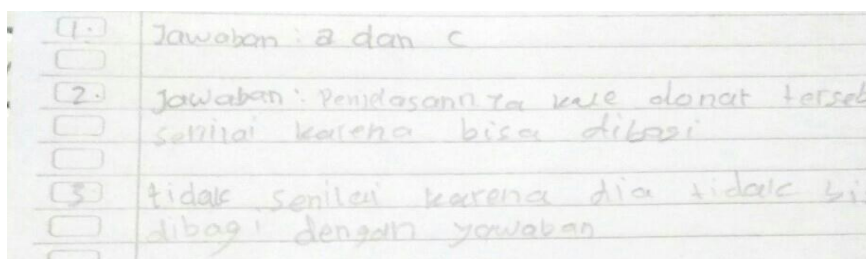 1. Jawaban : a dan c
2. Jawaban : Penjelasannya kue donat terseb
senilai karena bisa dibagi
3 tidak senilai karena dia tidak bi
dibagi dengan yawaban